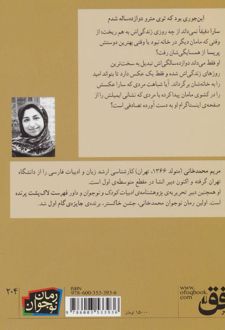 این‌جوری بود که توی مترو دوازده‌ساله شدم
سارا دقیقاً نمی‌داند از چه روزی زندگی‌اش به هم ریخت: از
وقتی که مامان دیگر در خانه نبود یا وقتی بهترین دوستش
پریسا از همسایگی‌شان رفت؟
او فقط می‌داند دوازده‌سالگی‌اش تبدیل به سخت‌ترین
روزهای زندگی‌اش شده و فقط یک عکس دارد تا بتواند امید
را به خانه‌شان برگرداند. آیا شباهت مردی که سارا عکسش
را در کشوی مامان پیدا کرده با مردی که نشانی ایمیلش را از
صفحه‌ی اینستاگرام او به دست آورده تصادفی است؟
مریم محمدخانی (متولد ۱۳۶۶، تهران) کارشناسی ارشد زبان و ادبیات فارسی را از دانشگاه
تهران گرفته و اکنون دبیر انشا در مقطع متوسطه‌ی اول است.
او همچنین دبیر تحریریه‌ی پژوهشنامه‌ی ادبیات کودک و نوجوان و داور فهرست لاک‌پشت پرنده
است. اولین رمان نوجوان محمدخانی، جشن خاکستر، برنده‌ی جایزه‌ی گام اول شد.
۲۰۴
رمان
نوجوان
ISBN
978-600-353-393-6
9 786003 533936
۱۵۰۰۰ تومان
www.
ofoqbook
.com
افق